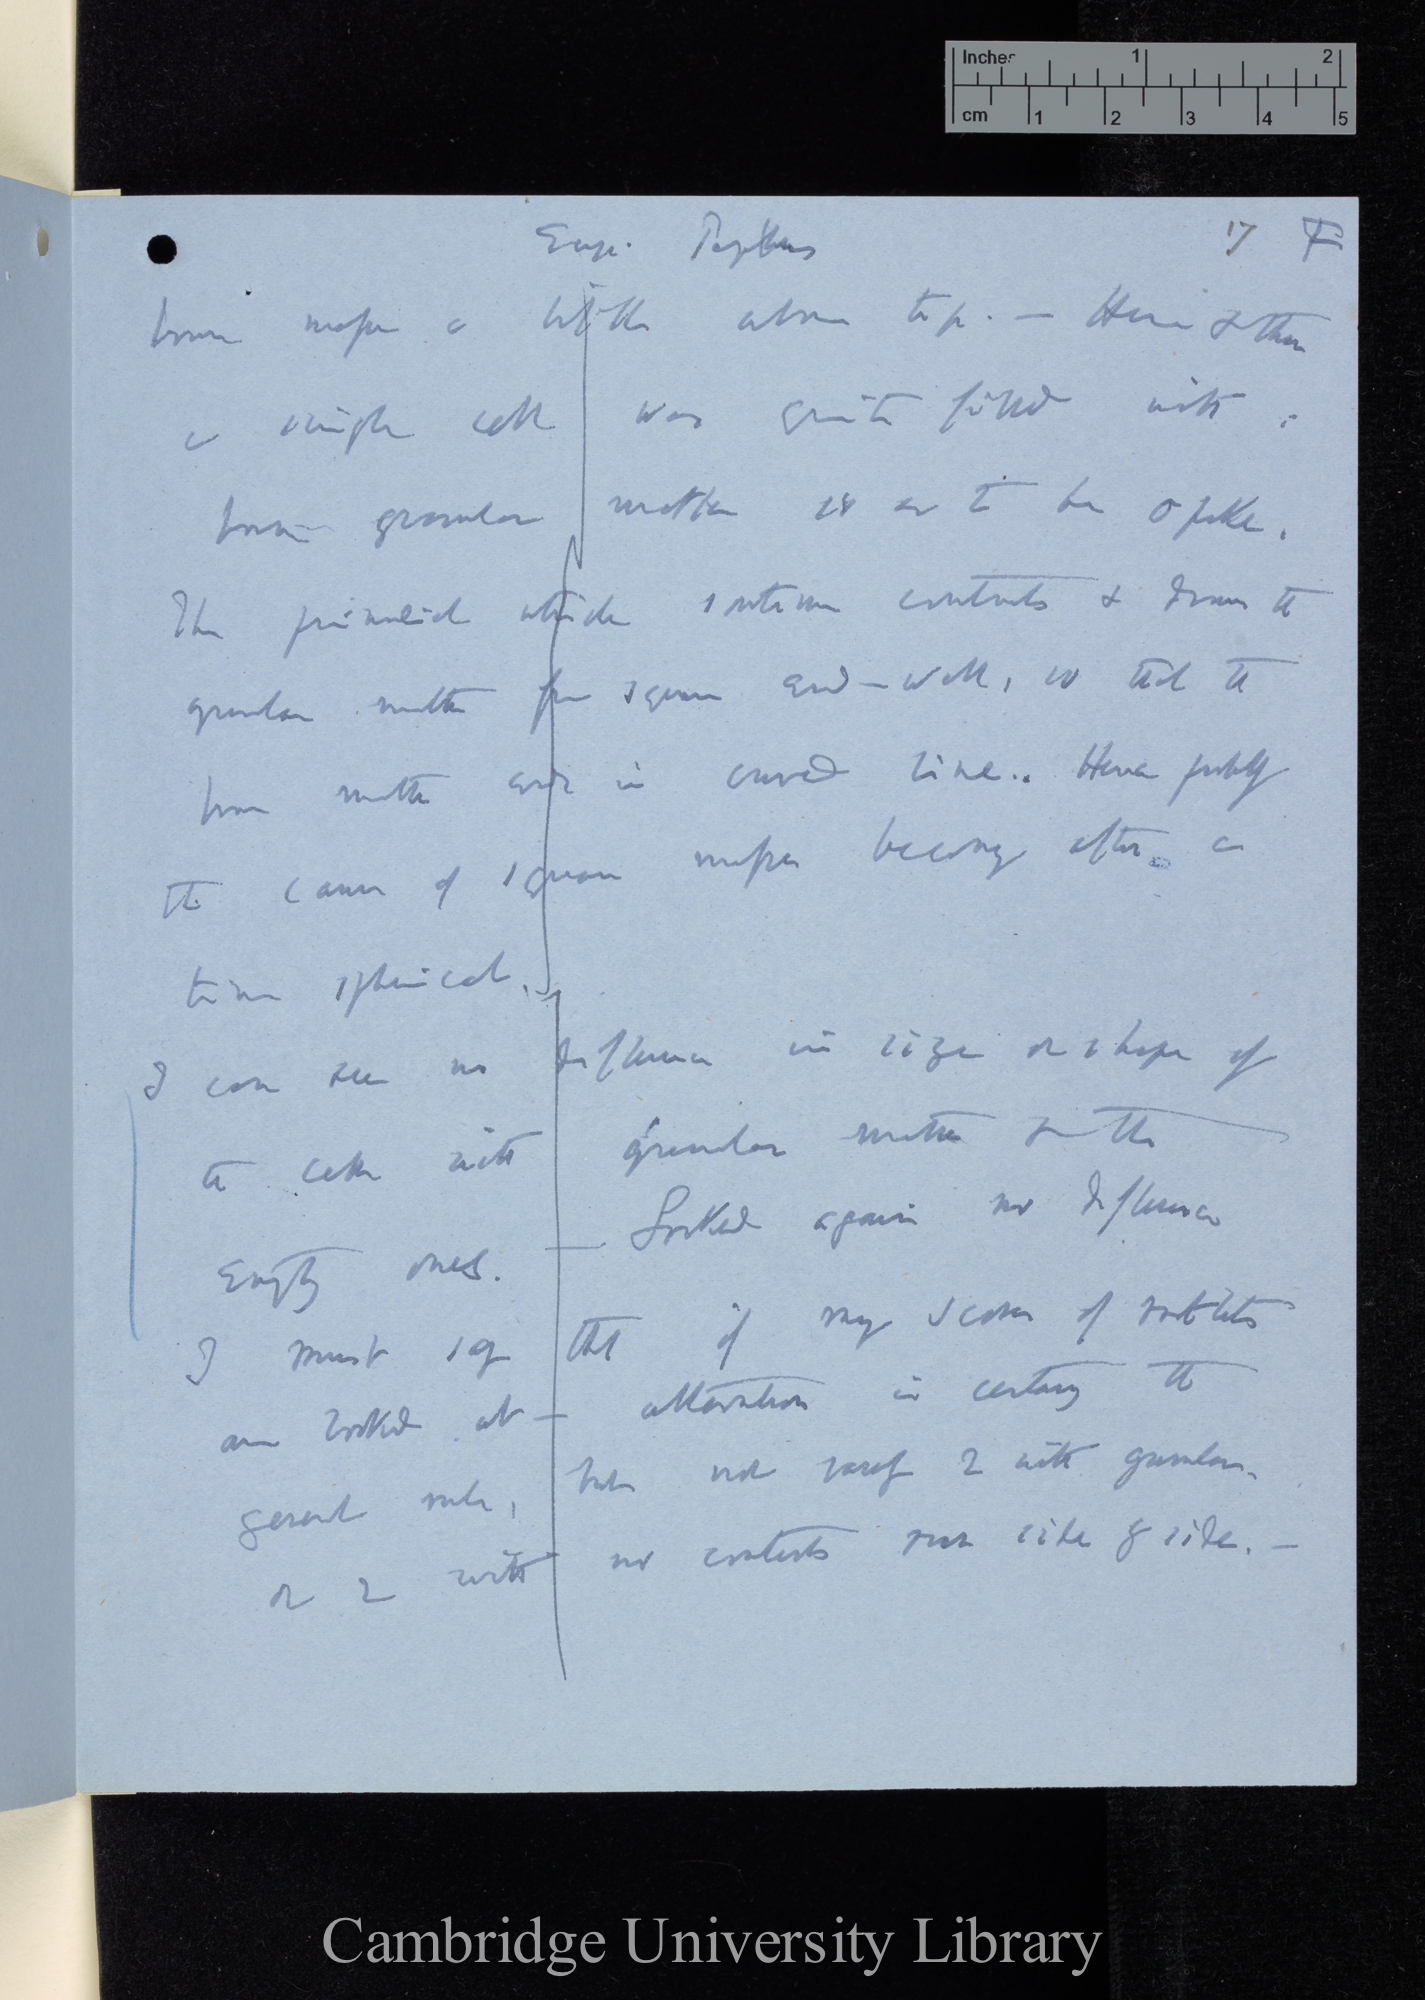 Inches 1 2
cm 1 2 3 4 5
Eup. Peplus 17 F
brown masses a little above tip. — Here & there
a single cell was quite filled with
brown granular matter so as to be opake.
The primordial utricle contents & draws the
granular matter from square end-wall, so that the
brown matter ends in curved line.. Hence probably
the cause of square masses becoming after a
time spherical.
I can see no difference in size or shape of
the cells with granular matter & the
empty ones. — Looked again no difference
I must say that if many scores of rootlets
are looked at — alternation is certainly the
general rule, but not rarely 2 with granular.
or 2 with no contents run side by side. —
Cambridge University Library